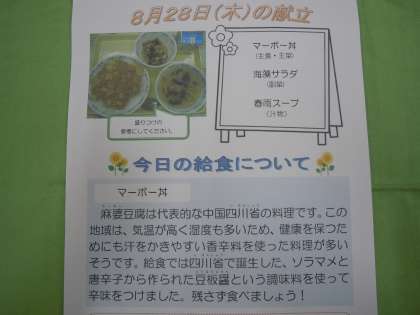 8月28日(木)の献立
マーボー丼
(主食・主菜)
海藻サラダ
(副菜)
春雨スープ
(汁物)
盛りつけの
参考にしてください。
今日の給食について
マーボー丼
麻婆豆腐は代表的な中国四川省の料理です。この
地域は、気温が高く湿度も多いため、健康を保つた
めにも汗をかきやすい香辛料を使った料理が多い
そうです。給食では四川省で誕生した、ソラマメと
唐辛子から作られた豆板醤という調味料を使って
辛味をつけました。残さず食べましょう!